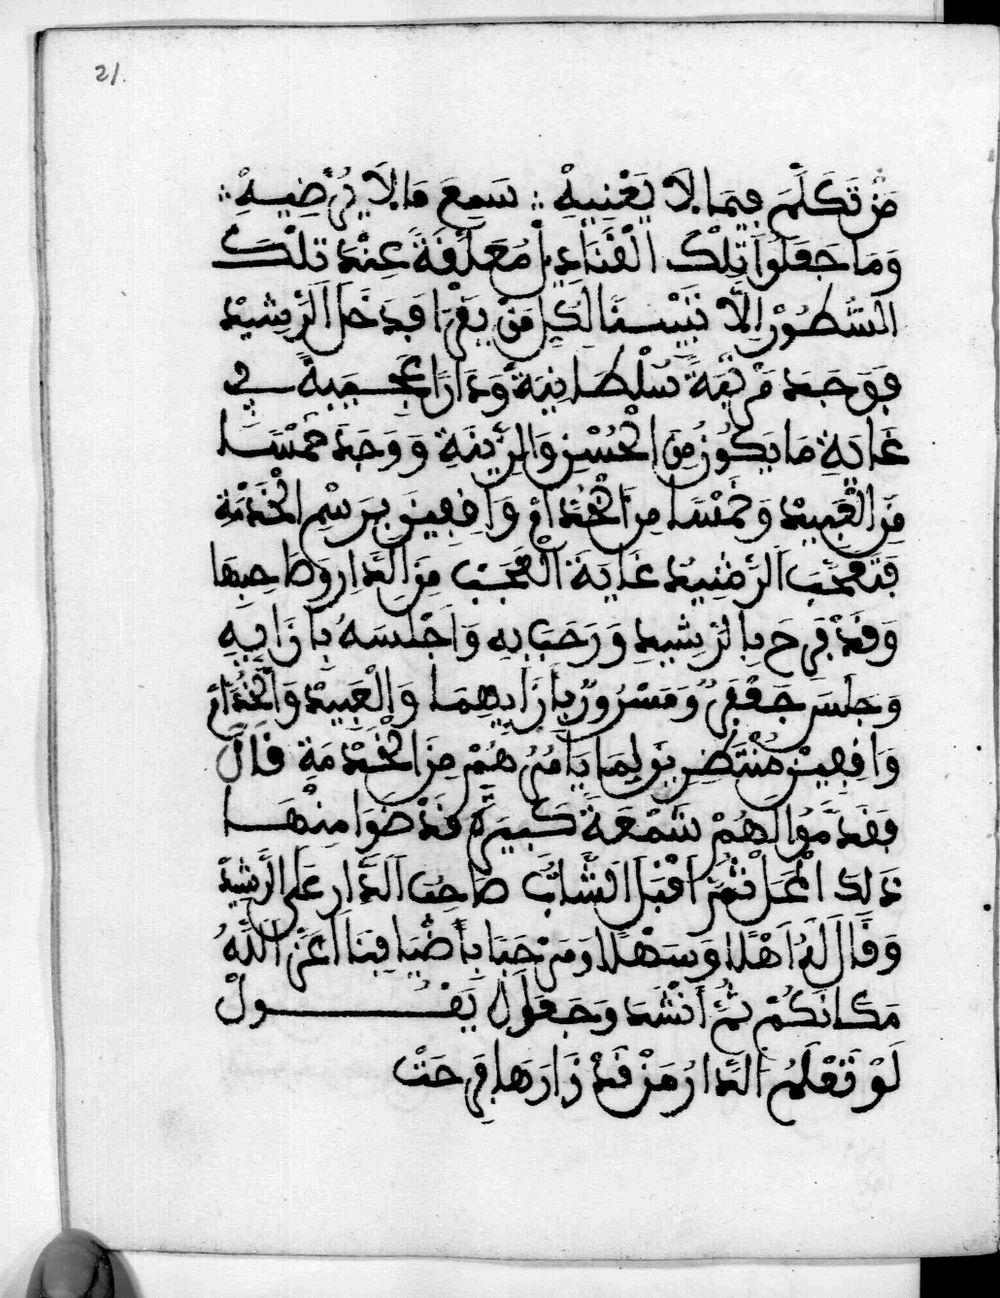 21.
مَنْ تَكَلَّمَ فِيمَا لَا يَعْنِيهْ ؞ سَمِعَ مَا لَا يُرْضِيهْ ؞
وَمَا جَعَلُوا تِلْكَ الْقَنَادِيل مُعَلَّقَةً عِنْدَ تلْكَ
السُّطُورْ إِلَّا تَبْيِينًا لِكُلِّ مَنْ يَقْرَا فَدَخَلَ الرَّشِيدْ
فَوَجَدَ مَرْتَبَةً سُلْطَانِيَةً وَدَارًا عَجِيبَةً في
غَايَةِ مَا يَكُونُ مِنَ الْحُسْنِ وَالزِّينَةِ وَوَجَدَ خَمْسًا
مِنَ الْعَبِيدْ وَخَمْسًا مِنَ الْخُدَّامْ وَاقِفِينَ بِرَسْمِ الْخَدْمَة
فَتَعَجَّبَ الرَّشِيدُ غَايَةَ الْعَجَبْ مِنَ الدَّارِ وَصَاحِبِهَا
وَقَدْ فَرِحَ بِالرَّشِيدِ وَرَحَبَ بِهِ وَاَجْلَسَهُ بِاِزَايِهِ
وَجَلَسَ جَعْفَرٌ وَمَسْرُورٌ بِاِزَايِهِمَا وَالْعَبِيدْ وَالْخُدَّامْ
وَاقِفِينَ مُنْتَظِرِينَ لِمَا يَامُرُهُمْ مِنَ الْخَدْمَةِ قَالَ
فَقَدَّمُوا لَهُمْ شَمْعَةَ كَبِيرَة قَدْ ضَوَا مِنْهَا
ذَلِكَ الْمَحَلْ ثُمَّ اَقْبَلَ الشَّابُّ صَاحِبَ الدَّارِ عَلَى الرَّشِيدْ
وَقَالَ لَهُ اَهْلًا وَسَهْلًا وَمَرْحَبَا بِأَضْيَافِنَا اَعَزَّ اللَّهُ
مَكَانَكُمْ ثُمَّ أَنْشَدَ وَجَعَلَ يَقُولْ
لَوْ تَعْلَمُ الدَّارُ مَنْ قَدْ زَارَهَا فَرِحَتْ